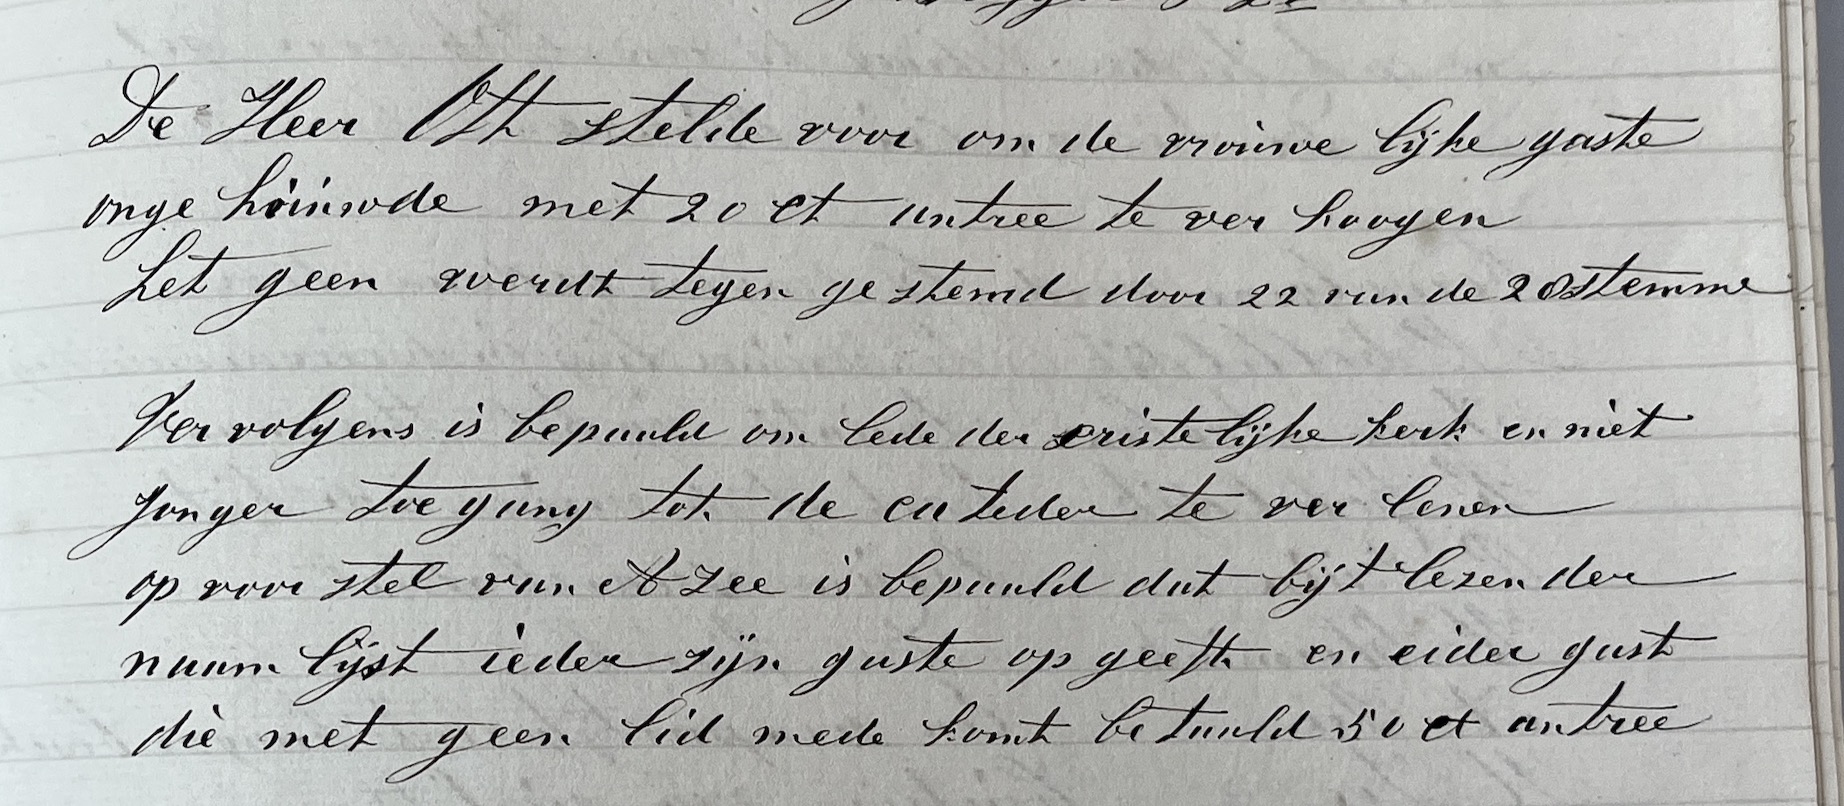 De Heer Ott stelde voor om de vrouwe lijke gaste
onge huiwde met 20 ct antree te ver hoogen
het geen werdt tegen ge stemd door 22 van de 28 stemme
Ver volgens is bepaald om lede der cristelijke kerk en niet
Jonger toe gang tot de ca teder te ver lenen
op voor stel van A Zee is bepaald dat bijt lezen der
naam lijst ieder zijn gaste op geeft en eider gast
die met geen lid mede komt betaald 50 ct antree